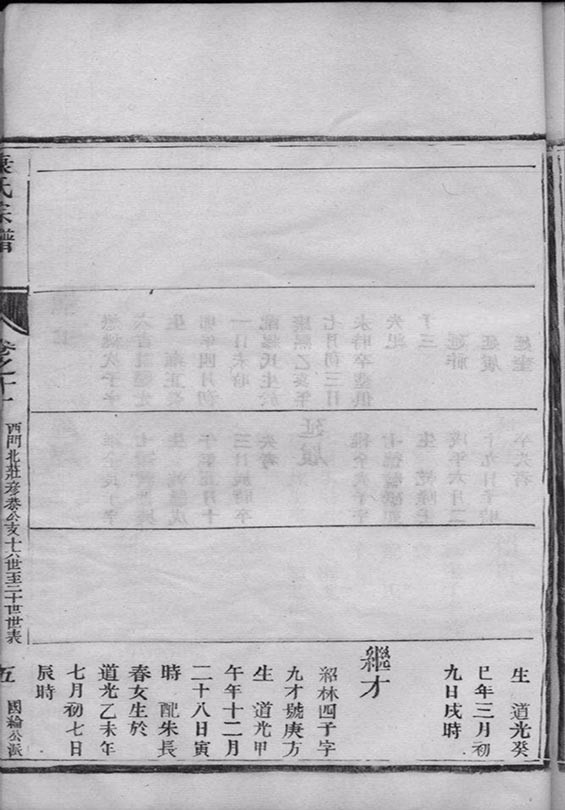 生 道光癸
巳年三月初
九日戌時
繼才
紹林四子字
九才號庚方
生 道光甲
午年十二月
二十八日寅
時 配朱長
春女生於
道光乙未年
七月初七日
辰時
氏宗譜
卷之十
西門北莊彥恭公支十六世至二十世世表
五
國綸公派